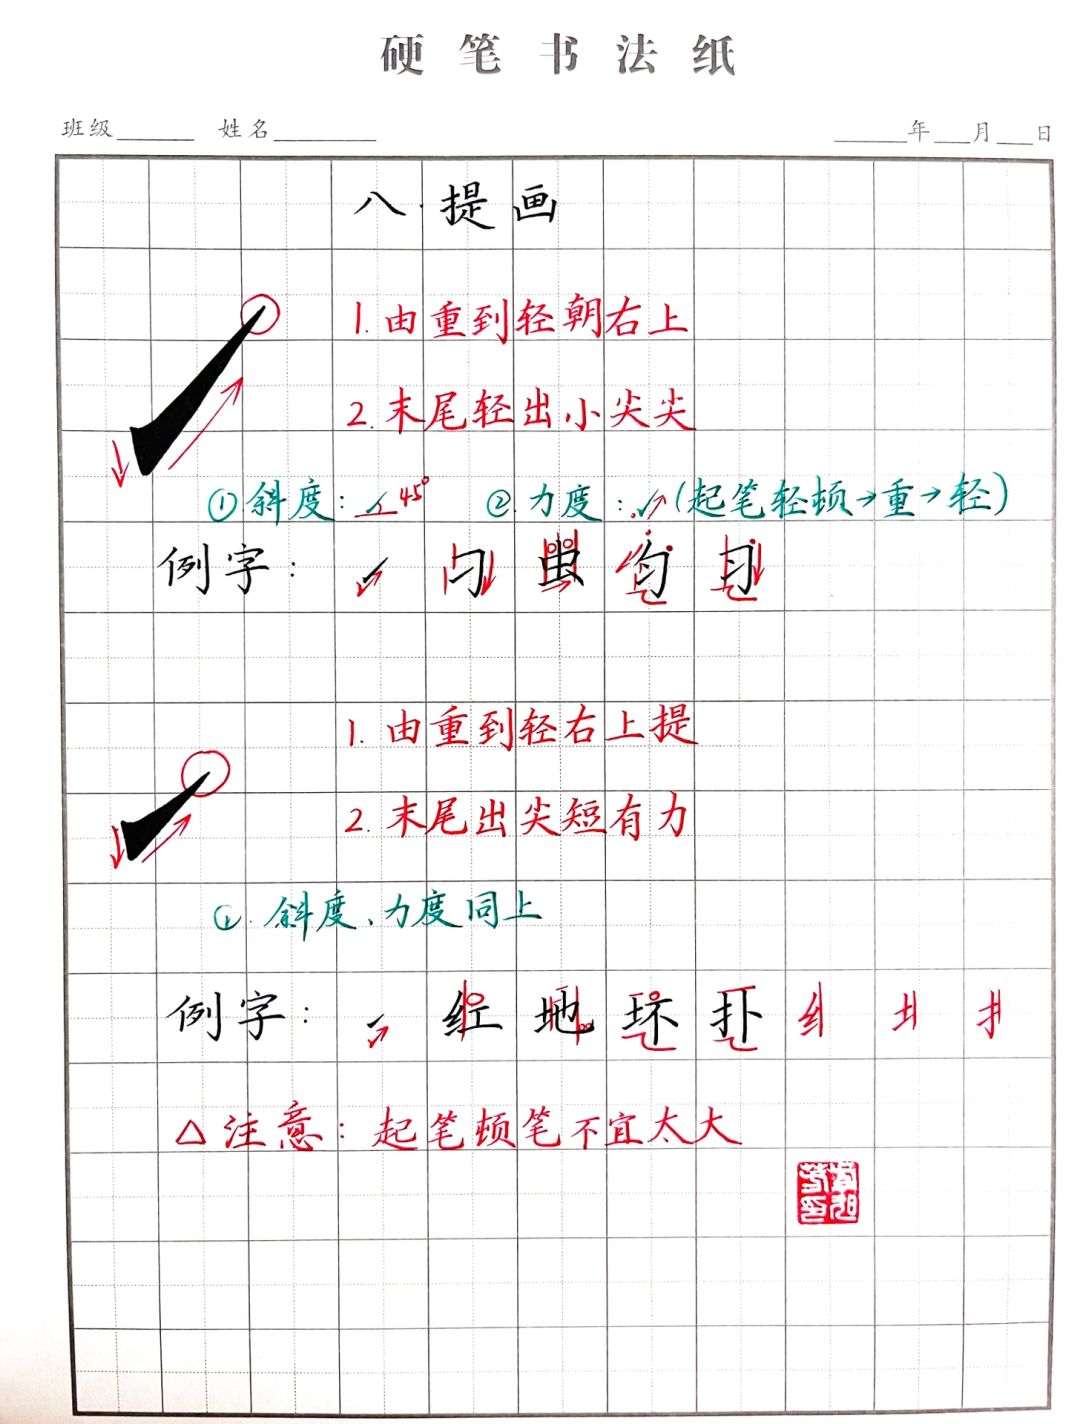 硬笔书法纸
班级______ 姓名______ ______年___月___日
八.提画
1.由重到轻朝右上
2.末尾轻出小尖尖
①斜度: 45° ②力度: (起笔轻顿→重→轻)
例字: 虫 匀
1.由重到轻右上提
2.末尾出尖短有力
①.斜度、力度同上
例字: 红 地 环 扑 纟 扌
△注意:起笔顿笔不宜太大